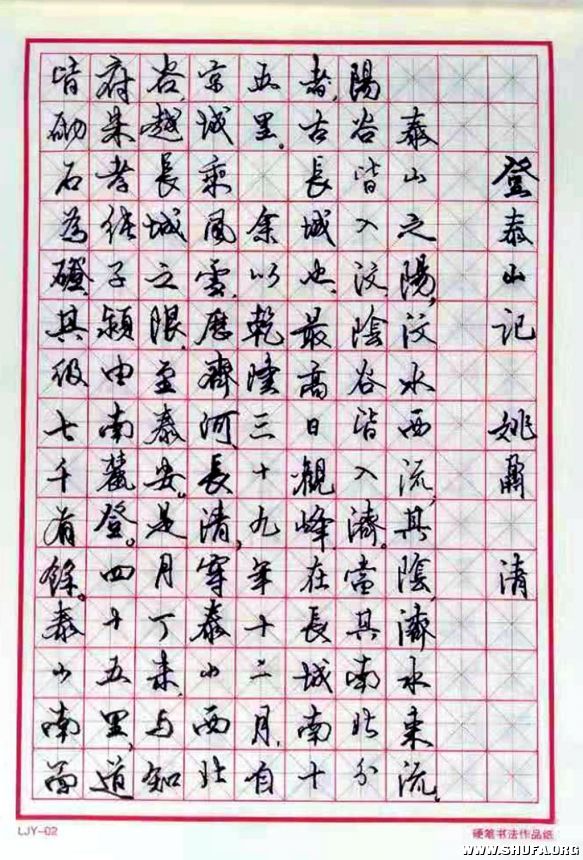 登泰山記 姚鼐 清
泰山之陽,汶水西流,其陰,濟水東流。
陽谷皆入汶,陰谷皆入濟。當其南北分
者,古長城也。最高日觀峰在長城南十
五里。余以乾隆三十九年十二月,自
京城乘風雪,歷齊河、長清,穿泰山西北
谷,越長城之限,至泰安。是月丁未,与知
府朱孝純子潁由南麓登。四十五里,道
皆砌石為磴,其級七千有餘。泰山南面
LJY-02
硬笔书法作品纸
WWW.SHUFA.ORG